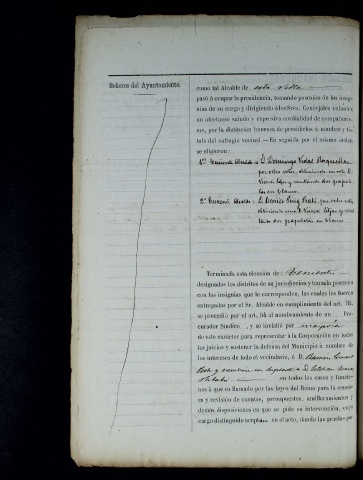 Señores del Ayuntamiento:
como tal Alcalde de esta Villa
pasó á ocupar la presidencia, tomando posesión de las insig-
nias de su cargo y dirigiendo álos Sres. Concejales votantes
un afectuoso saludo y expresiva cordialidad de compañeris-
mo, por la distinción honrosa de presidirlos á nombre y tí-
tulo del sufragio vecinal.—En seguida por el mismo orden
se eligieron:
1er Teniente Alcalde á D. Domingo Vidal
por ocho votos, obteniendo un voto D.
Vicente y resultando dos papele-
tas en blanco
2º Teniente Alcalde á D. Puig por ocho votos
obteniendo uno D. Vicente y resul-
tando dos papeletas en blanco
Terminada esta elección de Tenientes
designados los distritos de su jurisdicción y tomado posesión
con las insignias que le corresponden, las cuales les fueron
entregadas por el Sr. Alcalde en cumplimiento del art. 55,
se procedió por el art. 56 al nombramiento de un Pro-
curador Síndico, y se invistió por mayoría
de este carácter para representar á la Corporación en todos
los juicios y sostener la defensa del Municipio á nombre de
los intereses de todo el vecindario, á D. Ramón
y D. Esteban
en todos los casos y funcio-
nes á que es llamado por las leyes del Reino para la censu-
ra y revisión de cuentas, presupuestos, amillaramientos y
demás disposiciones en que se pide su intervención, cuyo
cargo distinguido aceptan en el acto, dando las gracias por